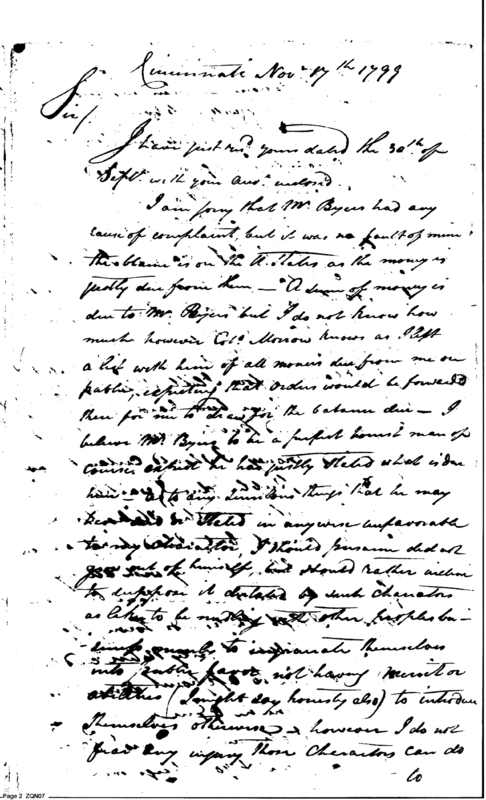 Cincinnati Novr 17th 1799
Sir/
I have just recd yours dated the 30th of
Septr with your Ansr inclosed.
I am sorry that Mr. Byers had any
cause of complaint, but it was no fault of mine
the blame is on the U. States as the money is
justly due from them — A sum of money is
due to Mr. Byers but I do not know how
much however Colo. Morrow knows as I left
a list with him of all monies due from me on
public, expecting that orders would be forwarded
then for me to draw for the balance due — I
believe Mr. Byers to be a perfect honest man of
course expect he has justly stated what is due
him as to any things that he may
have stated in anywise unfavorable
to my Character, I should presume did not
out of himself, but should rather incline
to suppose it dictated by such Characters
as like to be medling with other peoples bu-
siness to ingratiate themselves
into public favor not having merit or
abilities (I might say honesty also) to introduce
themselves otherwise, however I do not
fear any injury those Characters can do
to
Page 2 ZQN07